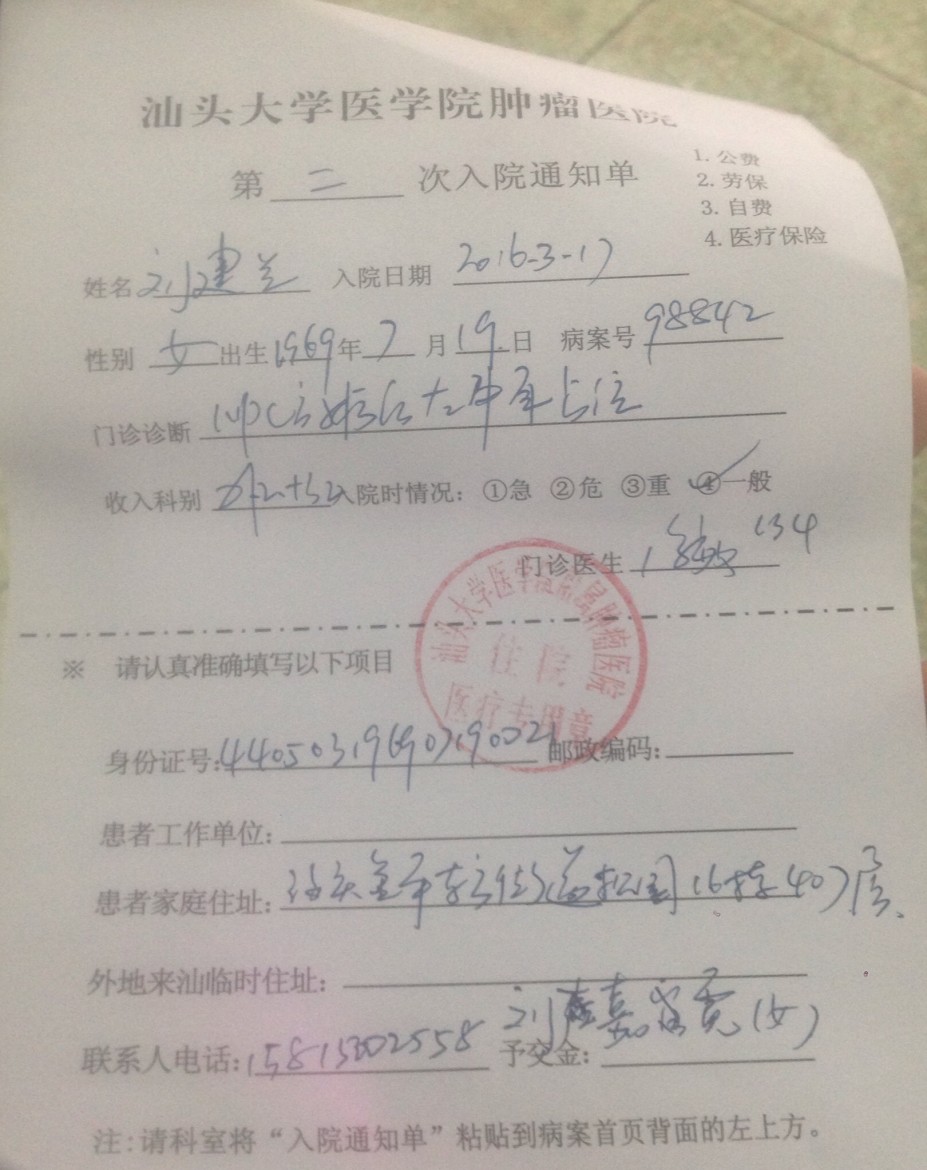 汕头大学医学院肿瘤医院
第 二 次入院通知单
1. 公费
2. 劳保
3. 自费
4. 医疗保险
姓名 刘建兰 入院日期 2016-3-17
性别 女 出生 1969 年 7 月 19 日 病案号 98842
门诊诊断
收入科别 入院时情况: ①急 ②危 ③重 ④一般
门诊医生 134
汕头大学医学院附属肿瘤医院
住院
医疗专用章
※ 请认真准确填写以下项目
身份证号: 440503196907190021 邮政编码:
患者工作单位:
患者家庭住址: 汕头金平 松园16栋407房
外地来汕临时住址:
联系人电话: 15815302558 予交金: 刘 嘉 (女)
注:请科室将“入院通知单”粘贴到病案首页背面的左上方。